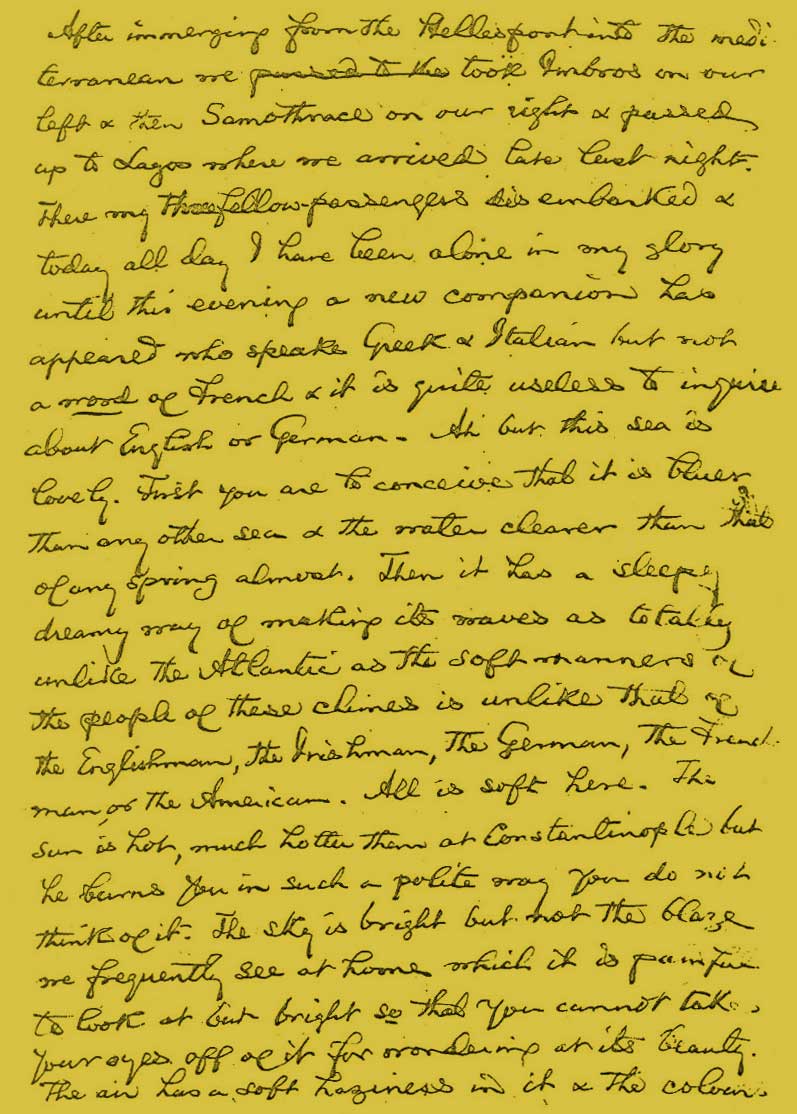 After immerging from the Hellespont into the medi-
terranean we passed to the took Imbros on our
left & then Samothrace on our right & passed
up to Lagos where we arrived late last night.
There my three fellow-passengers disembarked &
today all day I have been alone in my glory
until this evening a new companion has
appeared who speaks Greek & Italian but not
a word of French & it is quite useless to inquire
about English or German. Ah but this sea is
lovely. First you are to conceive that it is bluer
than any other sea & the water clearer than that
of any spring almost. Then it has a sleepy
dreamy way of making its waves as totally
unlike the Atlantic as the soft manners of
the people of these climes is unlike that of
the Englishman, the Irishman, the German, the French
man, or the American. All is soft here. The
sun is hot, much hotter than at Constantinople but
he burns you in such a polite way you do not
think of it. The sky is bright but not the blaze
we frequently see at home which it is painful
to look at but bright so that you cannot take
your eyes off of it for wondering at its beauty.
The air has a soft haziness in it & the colours